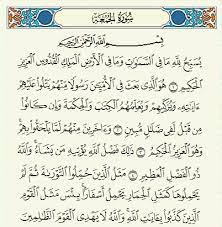 سُورَةُ الجُمُعَةِ
بِسْمِ اللَّهِ الرَّحْمَٰنِ الرَّحِيمِ
يُسَبِّحُ لِلَّهِ مَا فِي السَّمَٰوَٰتِ وَمَا فِي الْأَرْضِ الْمَلِكِ الْقُدُّوسِ الْعَزِيزِ
الْحَكِيمِ ۝١ هُوَ الَّذِي بَعَثَ فِي الْأُمِّيِّينَ رَسُولًا مِّنْهُمْ يَتْلُوا۟ عَلَيْهِمْ
ءَايَٰتِهِ وَيُزَكِّيهِمْ وَيُعَلِّمُهُمُ الْكِتَٰبَ وَالْحِكْمَةَ وَإِن كَانُوا۟
مِن قَبْلُ لَفِي ضَلَٰلٍ مُّبِينٍ ۝٢ وَءَاخَرِينَ مِنْهُمْ لَمَّا يَلْحَقُوا۟ بِهِمْ
وَهُوَ الْعَزِيزُ الْحَكِيمُ ۝٣ ذَٰلِكَ فَضْلُ اللَّهِ يُؤْتِيهِ مَن يَشَاءُ وَاللَّهُ
ذُو الْفَضْلِ الْعَظِيمِ ۝٤ مَثَلُ الَّذِينَ حُمِّلُوا۟ التَّوْرَىٰةَ ثُمَّ لَمْ
يَحْمِلُوهَا كَمَثَلِ الْحِمَارِ يَحْمِلُ أَسْفَارًۢا بِئْسَ مَثَلُ الْقَوْمِ
الَّذِينَ كَذَّبُوا۟ بِـَٔايَٰتِ اللَّهِ وَاللَّهُ لَا يَهْدِي الْقَوْمَ الظَّٰلِمِينَ